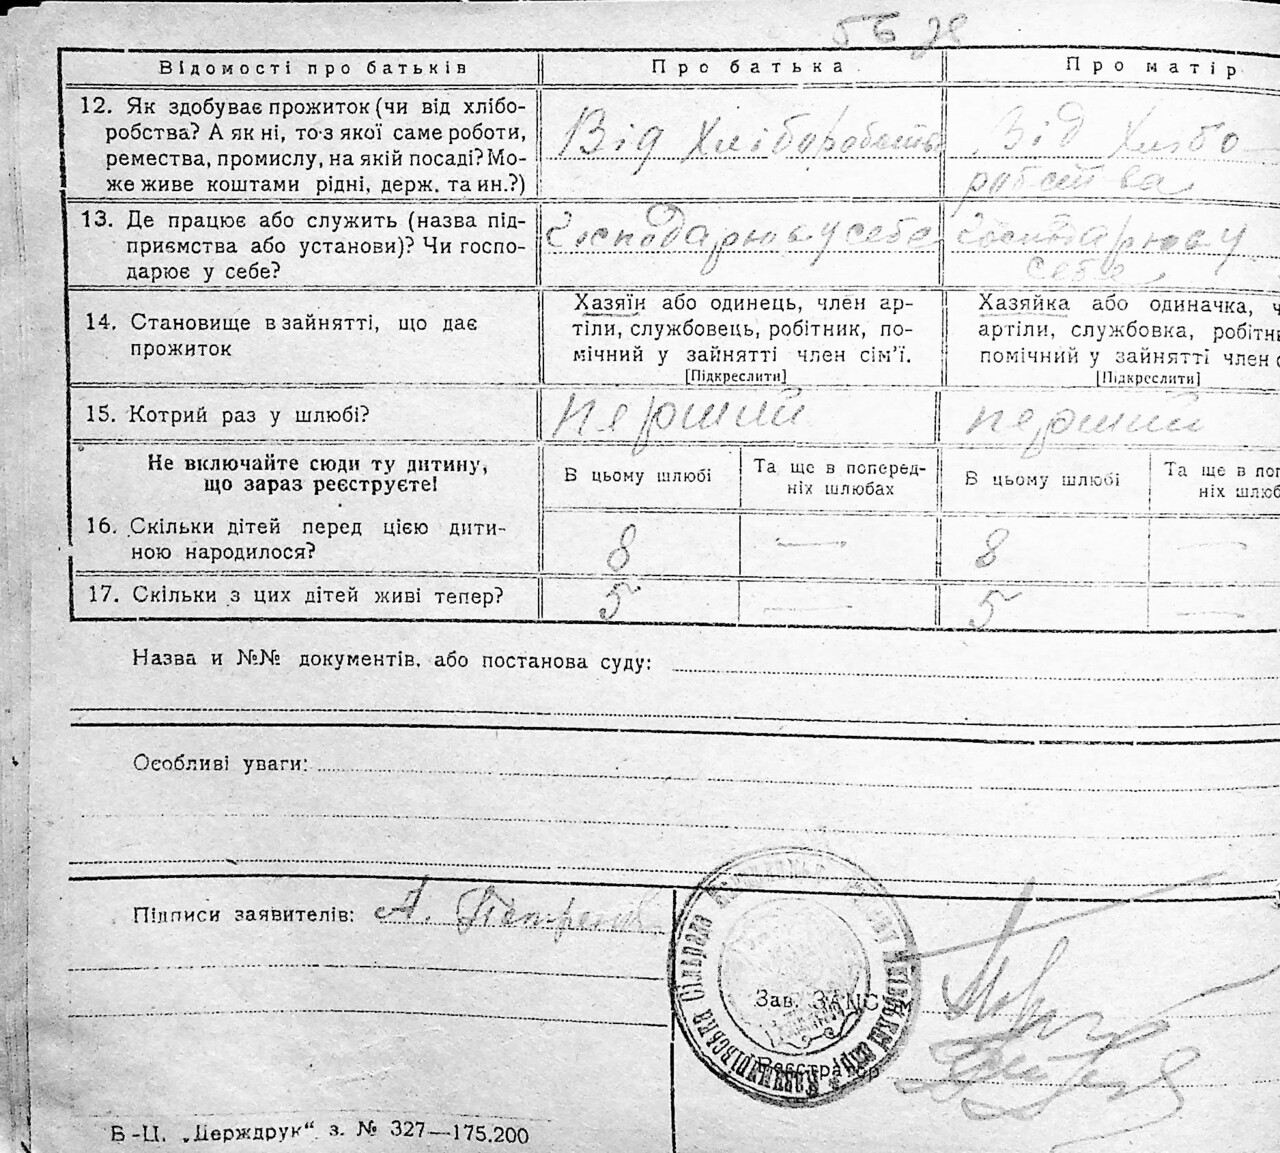 56 28
Відомості про батьків
Про батька
Про матір
12. Як здобуває прожиток (чи від хлібо-
робства? А як ні, то·з якої саме роботи,
ремества, промислу, на якій посаді? Мо-
же живе коштами рідні, держ. та ин.?)
Від Хліборобств
Від Хлібо
робства
13. Де працює або служить (назва під-
приємства або установи)? Чи госпо-
дарює у себе?
Господарює у себе
Господарює у
себе
14. Становище в зайнятті, що дає
прожиток
Хазяїн або одинець, член ар-
тіли, службовець, робітник, по-
мічний у зайнятті член сім'ї.
[Підкреслити]
Хазяйка або одиначка, ч
артіли, службовка, робітн
помічний у зайнятті член с
[Підкреслити]
15. Котрий раз у шлюбі?
перший
перший
Не включайте сюди ту дитину,
що зараз реєструєте!
В цьому шлюбі
Та ще в поперед-
ніх шлюбах
В цьому шлюбі
Та ще в поп
ніх шлюб
16. Скільки дітей перед цією дити-
ною народилося?
8
—
8
—
17. Скільки з цих дітей живі тепер?
5
—
5
—
Назва и №№ документів, або постанова суду:
Особливі уваги:
Підписи заявителів: А. Петренко
Сільрада
Зав. ЗАГС
Реєстратор
Б-Ц. „Держдрук“ з. № 327—175.200